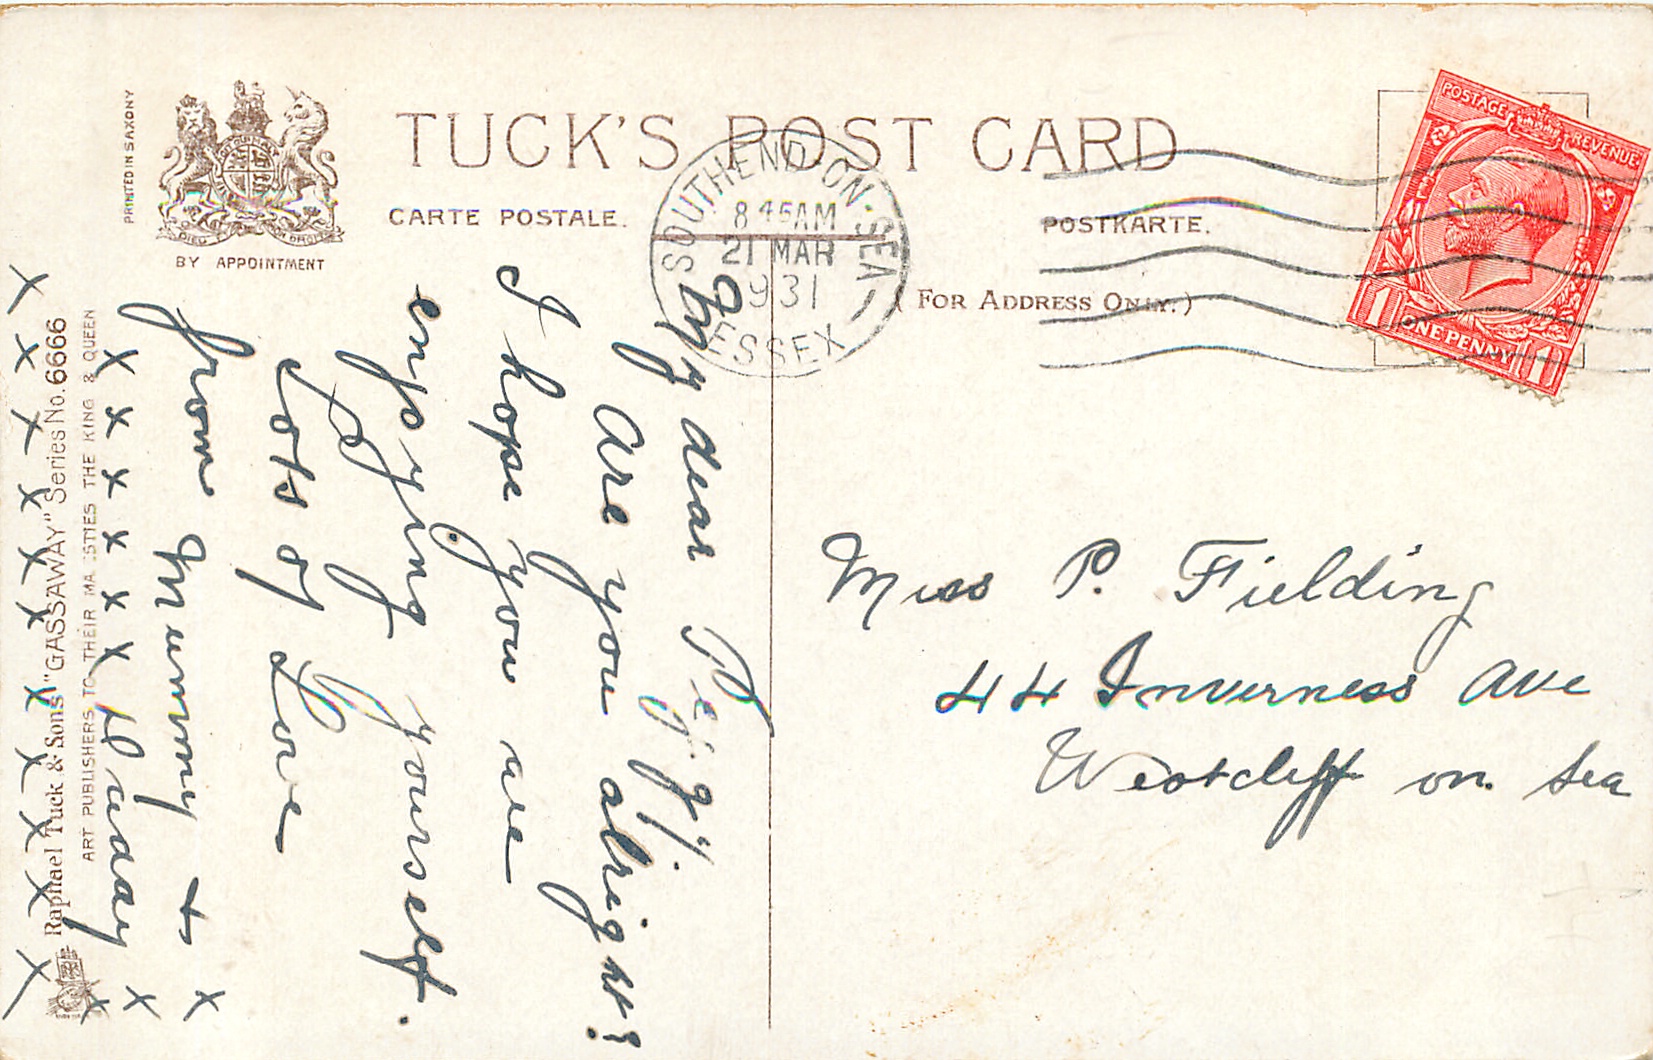 TUCK'S POST CARD
CARTE POSTALE.
POSTKARTE.
(FOR ADDRESS ONLY.)
PRINTED IN SAXONY
BY APPOINTMENT
SOUTHEND-ON-SEA
8 45AM
21 MAR
1931
ESSEX
POSTAGE REVENUE
1 ONE PENNY 1
My dear Peggy.
Are you alright?
I hope you are
enjoying yourself.
Lots of Love
from Mummy +
Daddy
x x x x x x x x x x x
x x x x x x
x x x
Miss P. Fielding
44 Inverness Ave
Westcliff on Sea
Raphael Tuck & Sons' "GASSAWAY" Series No. 6666
ART PUBLISHERS TO THEIR MA STIES THE KING & QUEEN